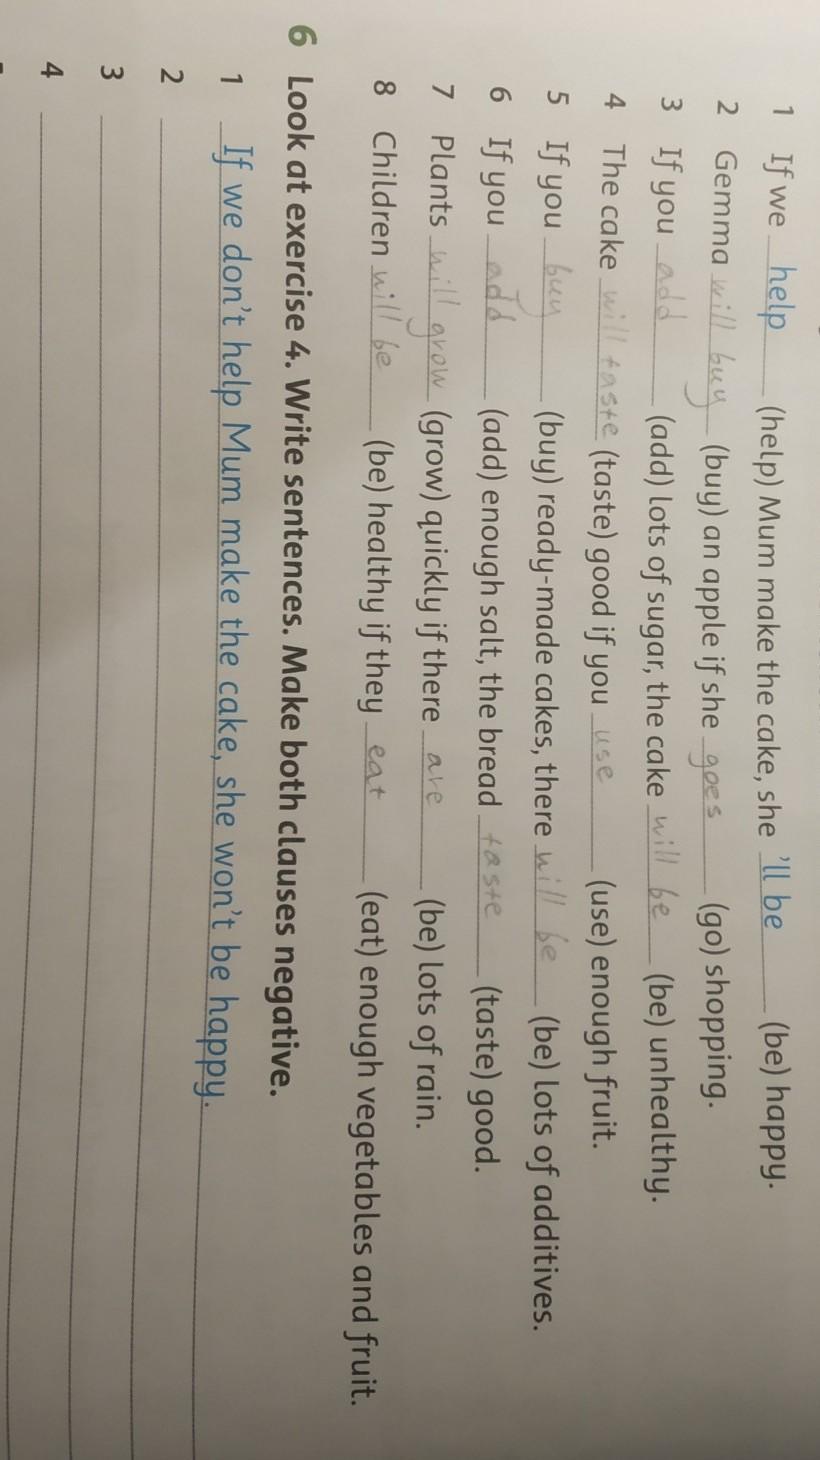 1 If we help (help) Mum make the cake, she 'll be (be) happy.
2 Gemma will buy (buy) an apple if she goes (go) shopping.
3 If you add (add) lots of sugar, the cake will be (be) unhealthy.
4 The cake will taste (taste) good if you use (use) enough fruit.
5 If you buy (buy) ready-made cakes, there will be (be) lots of additives.
6 If you add (add) enough salt, the bread taste (taste) good.
7 Plants will grow (grow) quickly if there are (be) lots of rain.
8 Children will be (be) healthy if they eat (eat) enough vegetables and fruit.
6 Look at exercise 4. Write sentences. Make both clauses negative.
1 If we don't help Mum make the cake, she won't be happy.
2
3
4